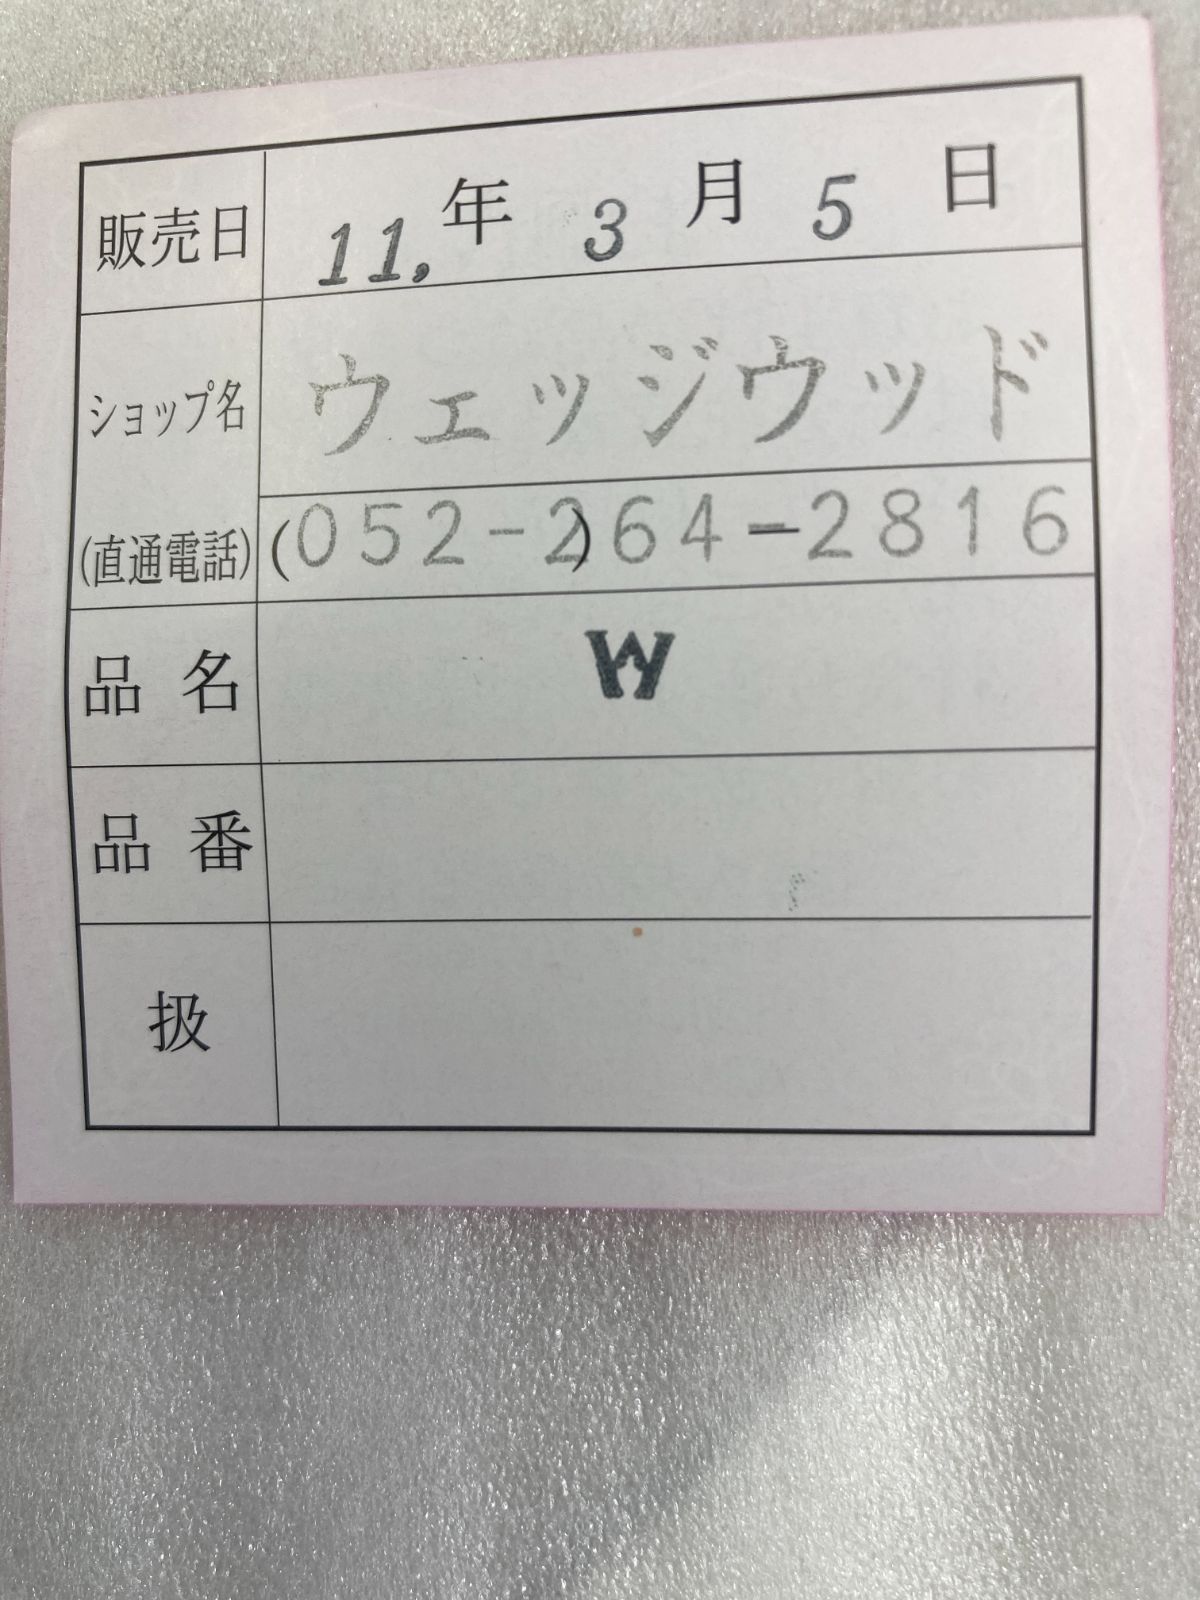 販売日 11, 年 3 月 5 日
ショップ名 ウェッジウッド
(直通電話) (052-2)64-2816
品名 W
品番
扱